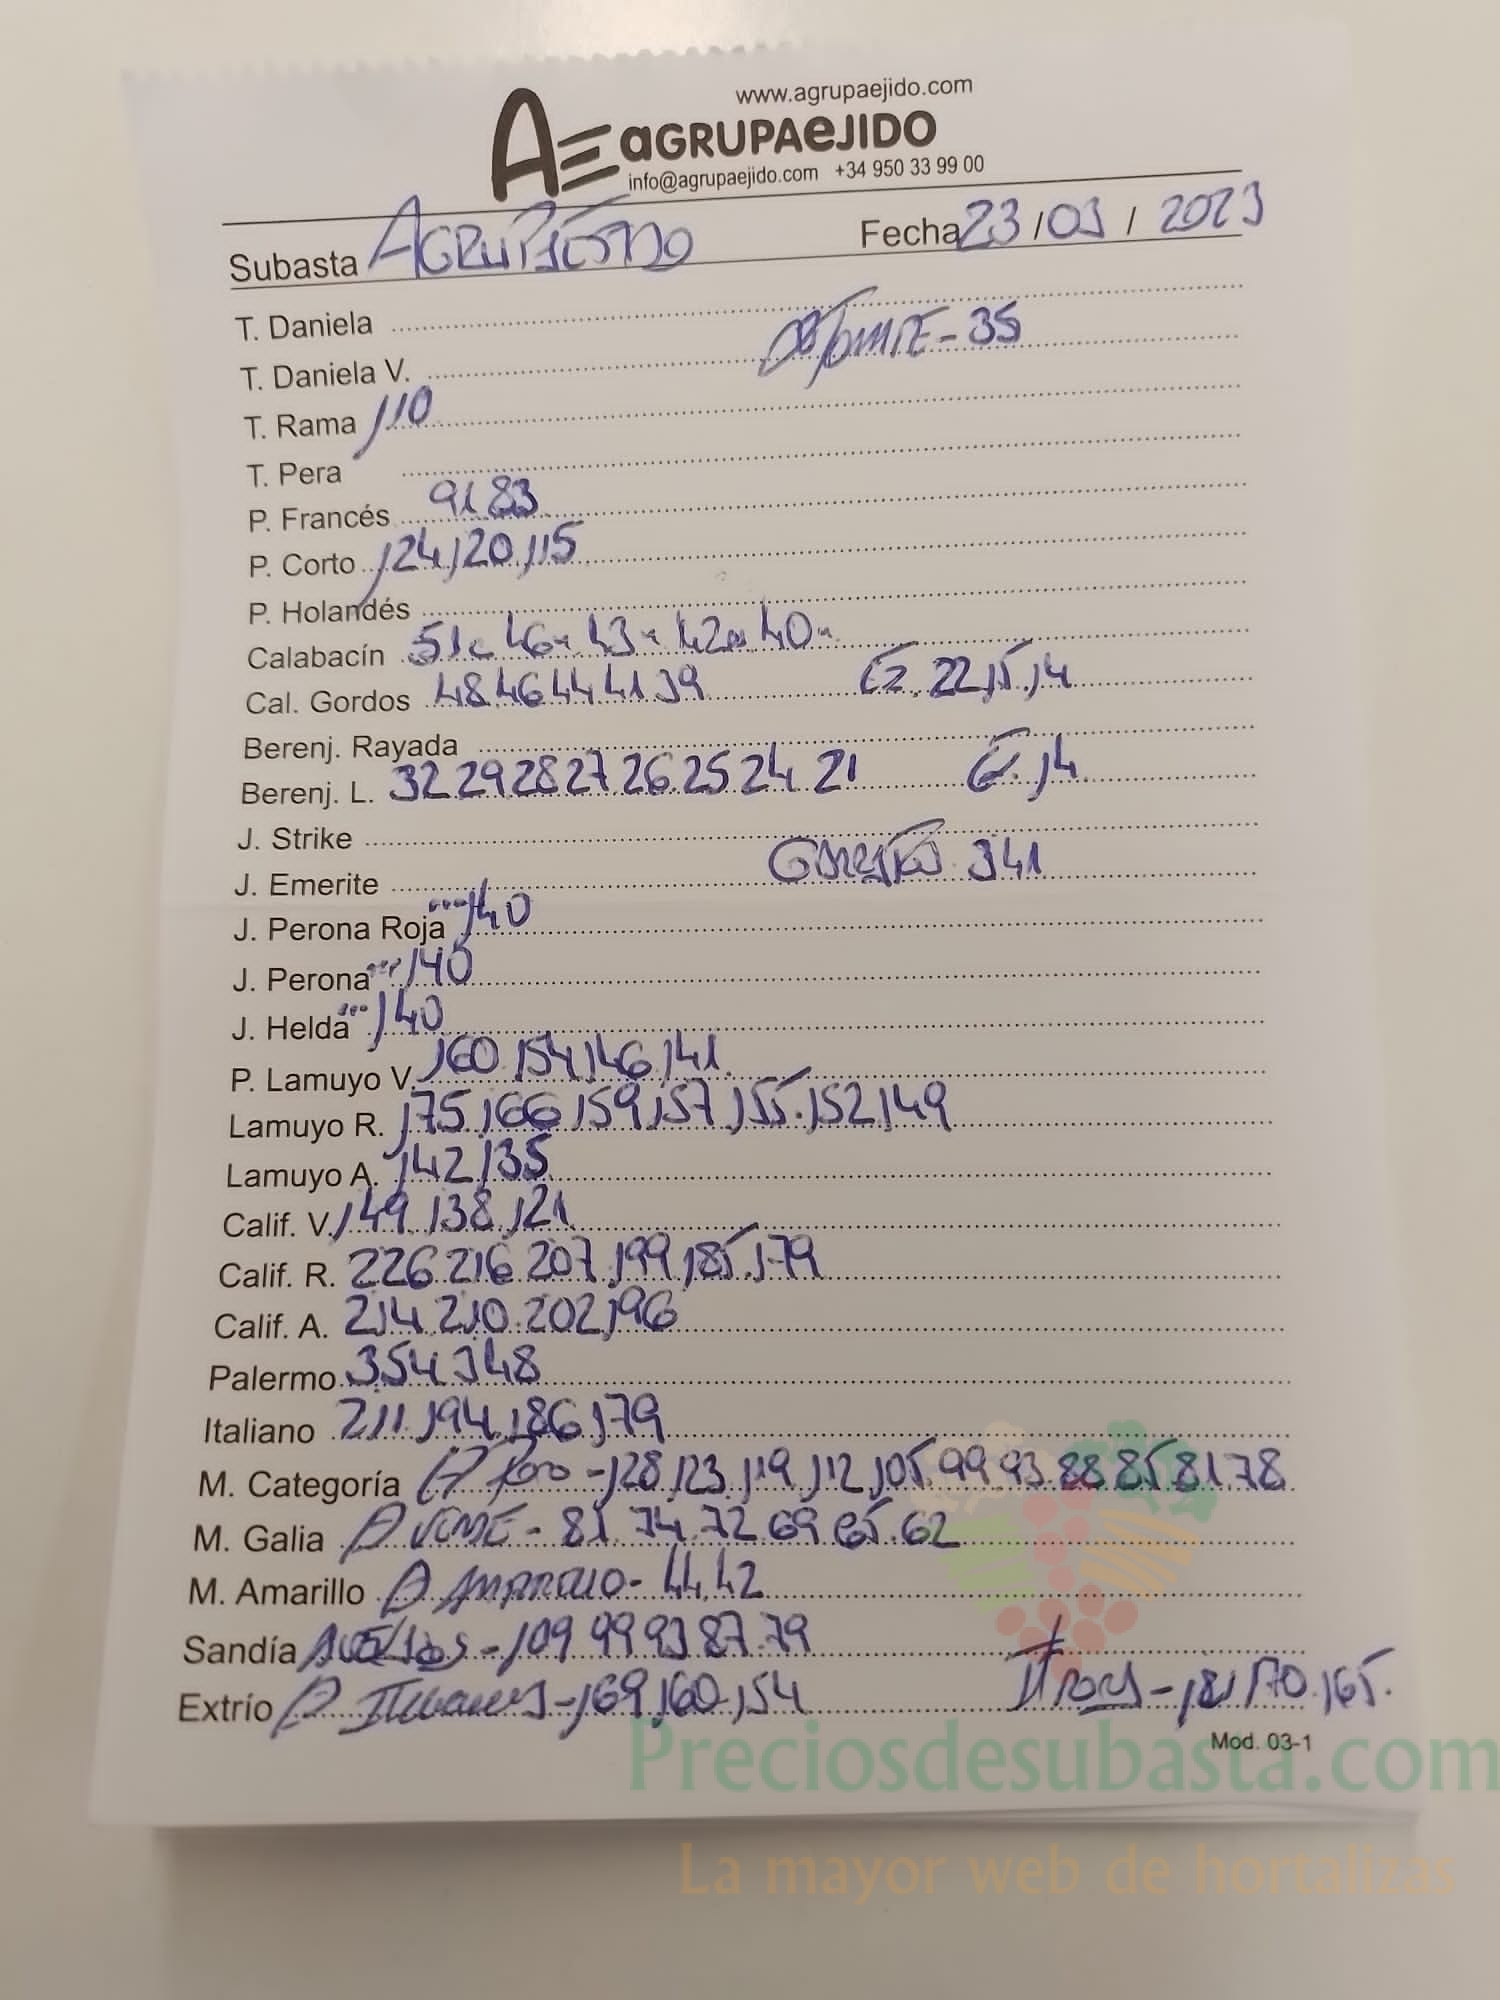 www.agrupaejido.com
AE aGRUPAeJIDO
info@agrupaejido.com +34 950 33 99 00
Subasta AGRUPAEJIDO Fecha 23 / 03 / 2023
T. Daniela
DESTOMATE - 35
T. Daniela V.
T. Rama 110
T. Pera
P. Francés 91 83
P. Corto 124 120 115
P. Holandés
Calabacín 51 46 43 42 40
Cal. Gordos 48 46 44 41 39 22 15 14
Berenj. Rayada
Berenj. L. 32 29 28 27 26 25 24 21 14
J. Strike
J. Emerite 341
J. Perona Roja 140
J. Perona 140
J. Helda 140
P. Lamuyo V. 160 154 146 141
Lamuyo R. 175 166 159 157 155 152 149
Lamuyo A. 142 135
Calif. V. 149 138 121
Calif. R. 226 216 207 199 185 179
Calif. A. 214 210 202 196
Palermo 354 348
Italiano 211 194 186 179
M. Categoría A Rojo - 128 123 119 112 105 99 93 88 85 81 78
M. Galia A VERDE - 81 74 72 69 65 62
M. Amarillo A AMARILLO - 44 42
Sandía - 109 99 93 87 79
Extrío A ITALIANOS - 169 160 154 It ROJOS - 181 170 165
Mod. 03-1
Preciosdesubasta.com
La mayor web de hortalizas